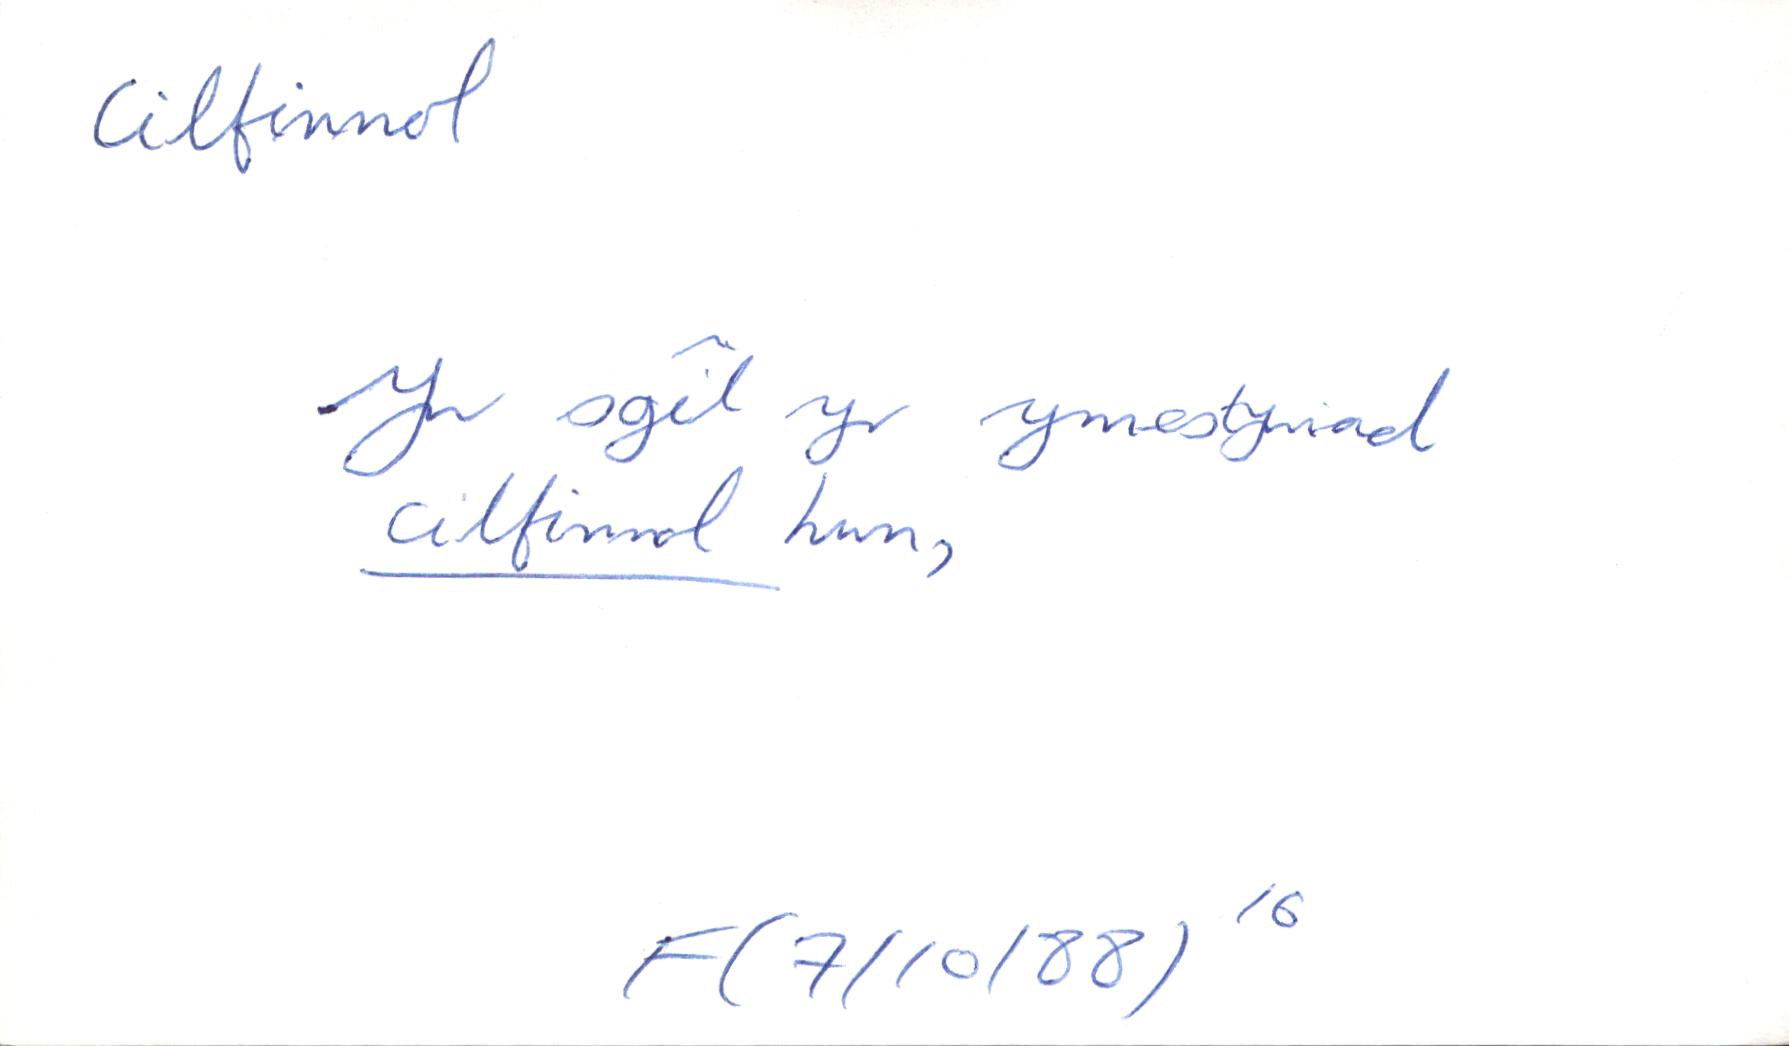 Cilfinnol
Yn sgîl yr ymestyniad
cilfinnol hwn,
F(7/10/88) 16